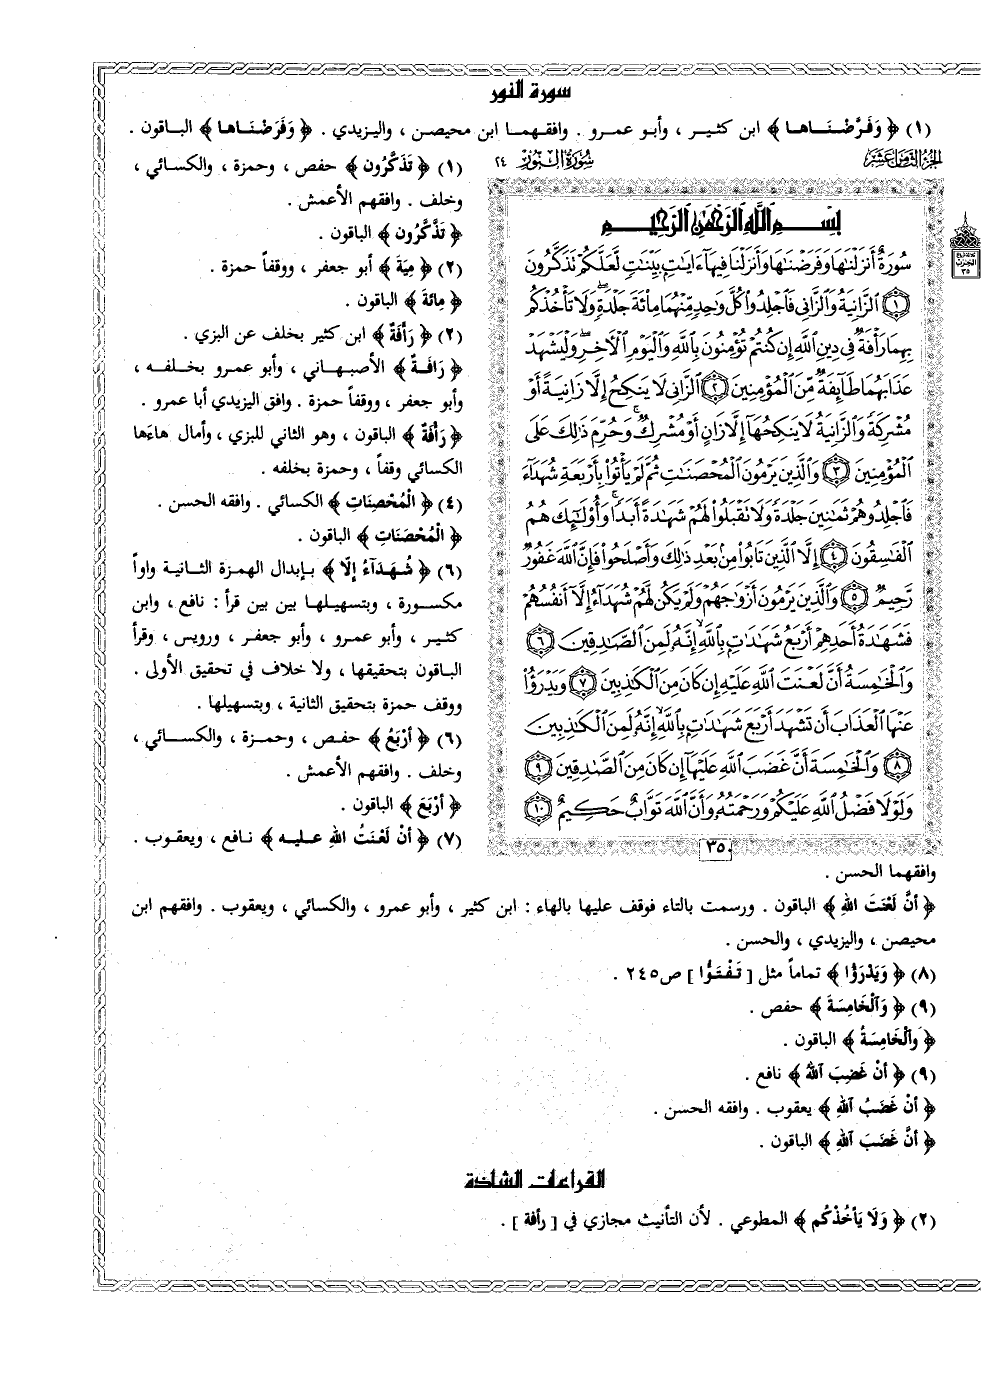 سورة النور
(١) ﴿ وَفَرَّضْنَاها ﴾ ابن كثير ، وأبو عمرو . وافقهما ابن محيصن ، واليزيدي . ﴿ وَفَرَضْنَاها ﴾ الباقون .
الجزء الثامن عشر
سورة النور ٢٤
(١) ﴿ تَذَكَّرُون ﴾ حفص ، وحمزة ، والكسائي ،
وخلف . وافقهم الأعمش .
﴿ تَذَّكَّرُون ﴾ الباقون .
(٢) ﴿ مِيَة ﴾ أبو جعفر ، ووقفاً حمزة .
﴿ مِائَة ﴾ الباقون .
(٢) ﴿ رَأَفَةٌ ﴾ ابن كثير بخلف عن البزي .
﴿ رَافَةٌ ﴾ الأصبهاني ، وأبو عمرو بخلفه ،
وأبو جعفر ، ووقفاً حمزة . وافق اليزيدي أبا عمرو .
﴿ رَأْفَةٌ ﴾ الباقون ، وهو الثاني للبزي ، وأمال هاءَها
الكسائي وقفاً ، وحمزة بخلفه .
(٤) ﴿ الْمُحْصِنَاتِ ﴾ الكسائي . وافقه الحسن .
﴿ الْمُحْصَنَاتِ ﴾ الباقون .
(٦) ﴿ شُهَدَاءُ إلَّا ﴾ بإبدال الهمزة الثانية واواً
مكسورة ، وبتسهيلها بين بين قرأ : نافع ، وابن
كثير ، وأبو عمرو ، وأبو جعفر ، ورويس ، وقرأ
الباقون بتحقيقها ، ولا خلاف في تحقيق الأولى .
ووقف حمزة بتحقيق الثانية ، وبتسهيلها .
(٦) ﴿ أَرْبَعُ ﴾ حفص ، وحمزة ، والكسائي ،
وخلف . وافقهم الأعمش .
﴿ أَرْبَعَ ﴾ الباقون .
(٧) ﴿ أنْ لَعْنَتُ اللهِ عليه ﴾ نافع ، ويعقوب .
بِسْمِ اللَّهِ الرَّحْمَٰنِ الرَّحِيمِ
سُورَةٌ أَنزَلْنَاهَا وَفَرَضْنَاهَا وَأَنزَلْنَا فِيهَا ءَايَاتٍ بَيِّنَاتٍ لَّعَلَّكُمْ تَذَكَّرُونَ
١ الزَّانِيَةُ وَالزَّانِي فَاجْلِدُوا كُلَّ وَاحِدٍ مِّنْهُمَا مِائَةَ جَلْدَةٍ وَلَا تَأْخُذْكُم
بِهِمَا رَأْفَةٌ فِي دِينِ اللَّهِ إِن كُنتُمْ تُؤْمِنُونَ بِاللَّهِ وَالْيَوْمِ الْآخِرِ وَلْيَشْهَدْ
عَذَابَهُمَا طَائِفَةٌ مِّنَ الْمُؤْمِنِينَ ٢ الزَّانِي لَا يَنكِحُ إِلَّا زَانِيَةً أَوْ
مُشْرِكَةً وَالزَّانِيَةُ لَا يَنكِحُهَا إِلَّا زَانٍ أَوْ مُشْرِكٌ وَحُرِّمَ ذَٰلِكَ عَلَى
الْمُؤْمِنِينَ ٣ وَالَّذِينَ يَرْمُونَ الْمُحْصَنَاتِ ثُمَّ لَمْ يَأْتُوا بِأَرْبَعَةِ شُهَدَاءَ
فَاجْلِدُوهُمْ ثَمَانِينَ جَلْدَةً وَلَا تَقْبَلُوا لَهُمْ شَهَادَةً أَبَدًا وَأُولَٰئِكَ هُمُ
الْفَاسِقُونَ ٤ إِلَّا الَّذِينَ تَابُوا مِن بَعْدِ ذَٰلِكَ وَأَصْلَحُوا فَإِنَّ اللَّهَ غَفُورٌ
رَّحِيمٌ ٥ وَالَّذِينَ يَرْمُونَ أَزْوَاجَهُمْ وَلَمْ يَكُن لَّهُمْ شُهَدَاءُ إِلَّا أَنفُسُهُمْ
فَشَهَادَةُ أَحَدِهِمْ أَرْبَعُ شَهَادَاتٍ بِاللَّهِ إِنَّهُ لَمِنَ الصَّادِقِينَ ٦
وَالْخَامِسَةُ أَنَّ لَعْنَتَ اللَّهِ عَلَيْهِ إِن كَانَ مِنَ الْكَاذِبِينَ ٧ وَيَدْرَؤُا
عَنْهَا الْعَذَابَ أَن تَشْهَدَ أَرْبَعَ شَهَادَاتٍ بِاللَّهِ إِنَّهُ لَمِنَ الْكَاذِبِينَ
٨ وَالْخَامِسَةَ أَنَّ غَضَبَ اللَّهِ عَلَيْهَا إِن كَانَ مِنَ الصَّادِقِينَ ٩
وَلَوْلَا فَضْلُ اللَّهِ عَلَيْكُمْ وَرَحْمَتُهُ وَأَنَّ اللَّهَ تَوَّابٌ حَكِيمٌ ١٠
٣٥٠
وافقهما الحسن .
﴿ أنَّ لَعْنَتَ اللهِ ﴾ الباقون . ورسمت بالتاء فوقف عليها بالهاء : ابن كثير ، وأبو عمرو ، والكسائي ، ويعقوب . وافقهم ابن
محيصن ، واليزيدي ، والحسن .
(٨) ﴿ وَيَدْرَؤُا ﴾ تماماً مثل [ تَفْتَؤُا ] ص٢٤٥ .
(٩) ﴿ وَالْخَامِسَةَ ﴾ حفص .
﴿ وَالْخَامِسَةُ ﴾ الباقون .
(٩) ﴿ أنْ غَضِبَ اللهُ ﴾ نافع .
﴿ أنْ غَضَبُ اللهِ ﴾ يعقوب . وافقه الحسن .
﴿ أنَّ غَضَبَ اللهِ ﴾ الباقون .
القراءات الشاذة
(٢) ﴿ وَلَا يَأخُذْكُم ﴾ المطوعي . لأن التأنيث مجازي في [ رأفة ] .